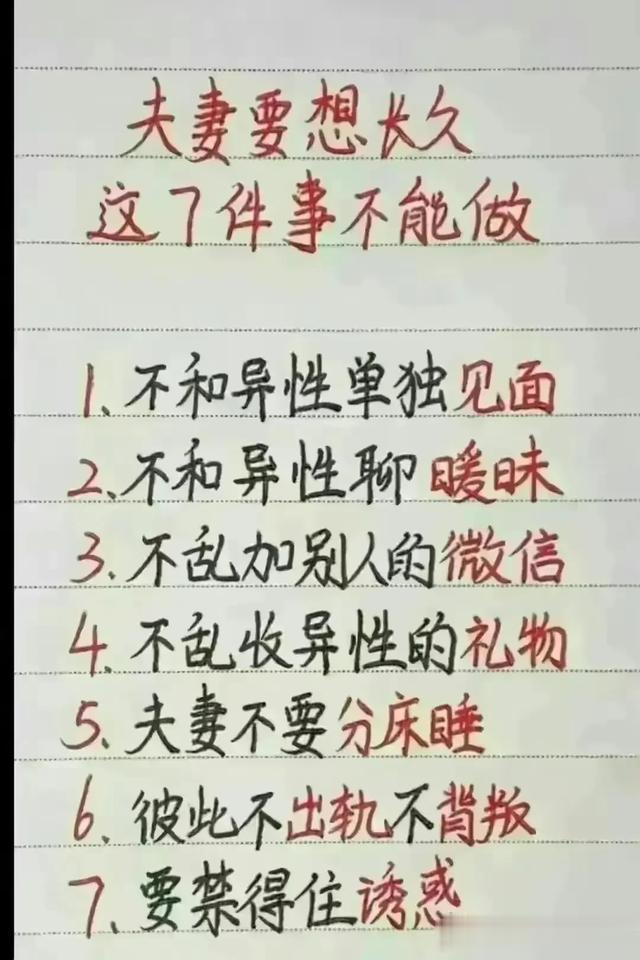 夫妻要想长久
这7件事不能做
1、不和异性单独见面
2、不和异性聊暖昧
3、不乱加别人的微信
4、不乱收异性的礼物
5、夫妻不要分床睡
6、彼此不出轨不背叛
7、要禁得住诱惑